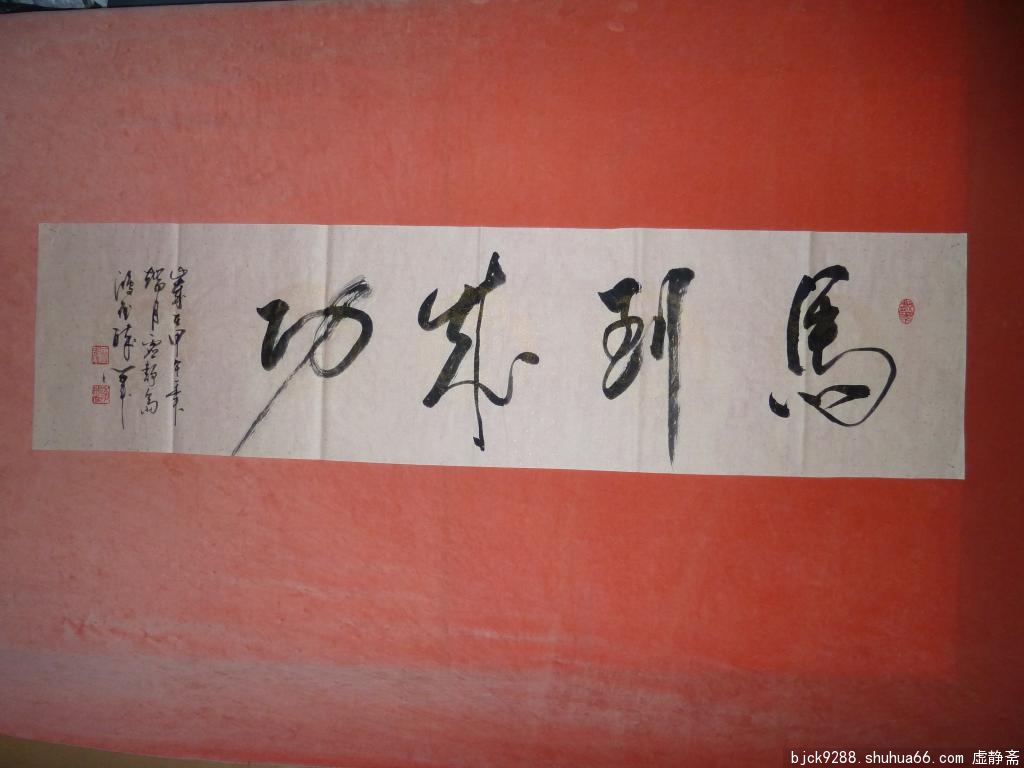 馬到成功
歲在甲午年
端月虛靜齋
bjck9288.shuhua66.com 虚静斋